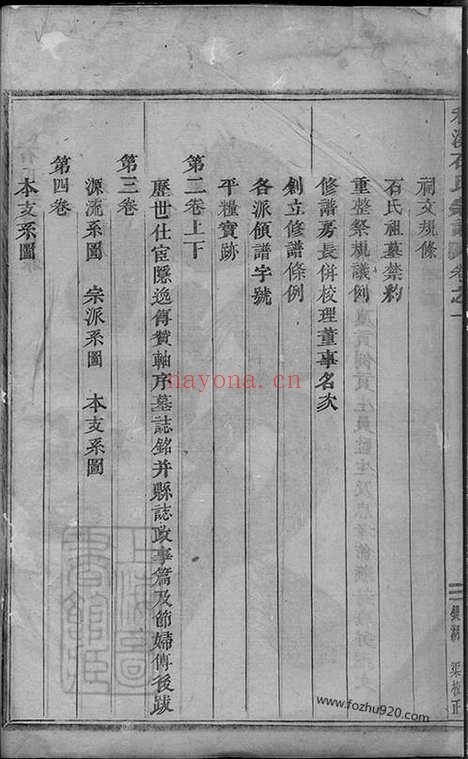 石氏
卷之一
祠文規條
石氏祖墓禁約
重整祭規議例
修譜房長併校理董事名次
創立修譜條例
各派領譜字號
平糧實跡
第二卷上下
歷世仕宦隱逸傳贊軸序墓誌銘并縣誌政事篇及節婦傳後跋
第三卷
源流系圖 宗派系圖 本支系圖
第四卷
本支系圖
nayona.cn
www.fozhu920.com